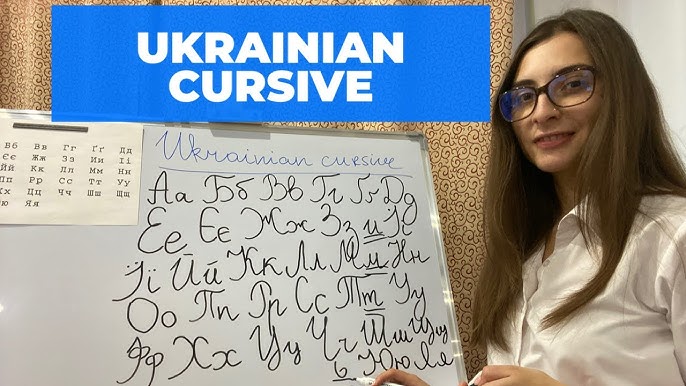 UKRAINIAN
CURSIVE
Бб Вв Гг Ґґ Дд
Єє Жж Зз Ии Іі
Йй Кк Лл Мм Нн
Пп Рр Сс Тт Уу
Хх Цц Чч Шш Щщ
ю Яя
Ukrainian cursive
Аа Бб Вв Гг Ґґ Дд
Ее Єє Жж Зз и Іі
Її Йй Кк Лл Мм Нн
Оо Пп Рр Сс Тт Уу
Фф Хх Цц Чч Шш Щщ
ь Юю Яя